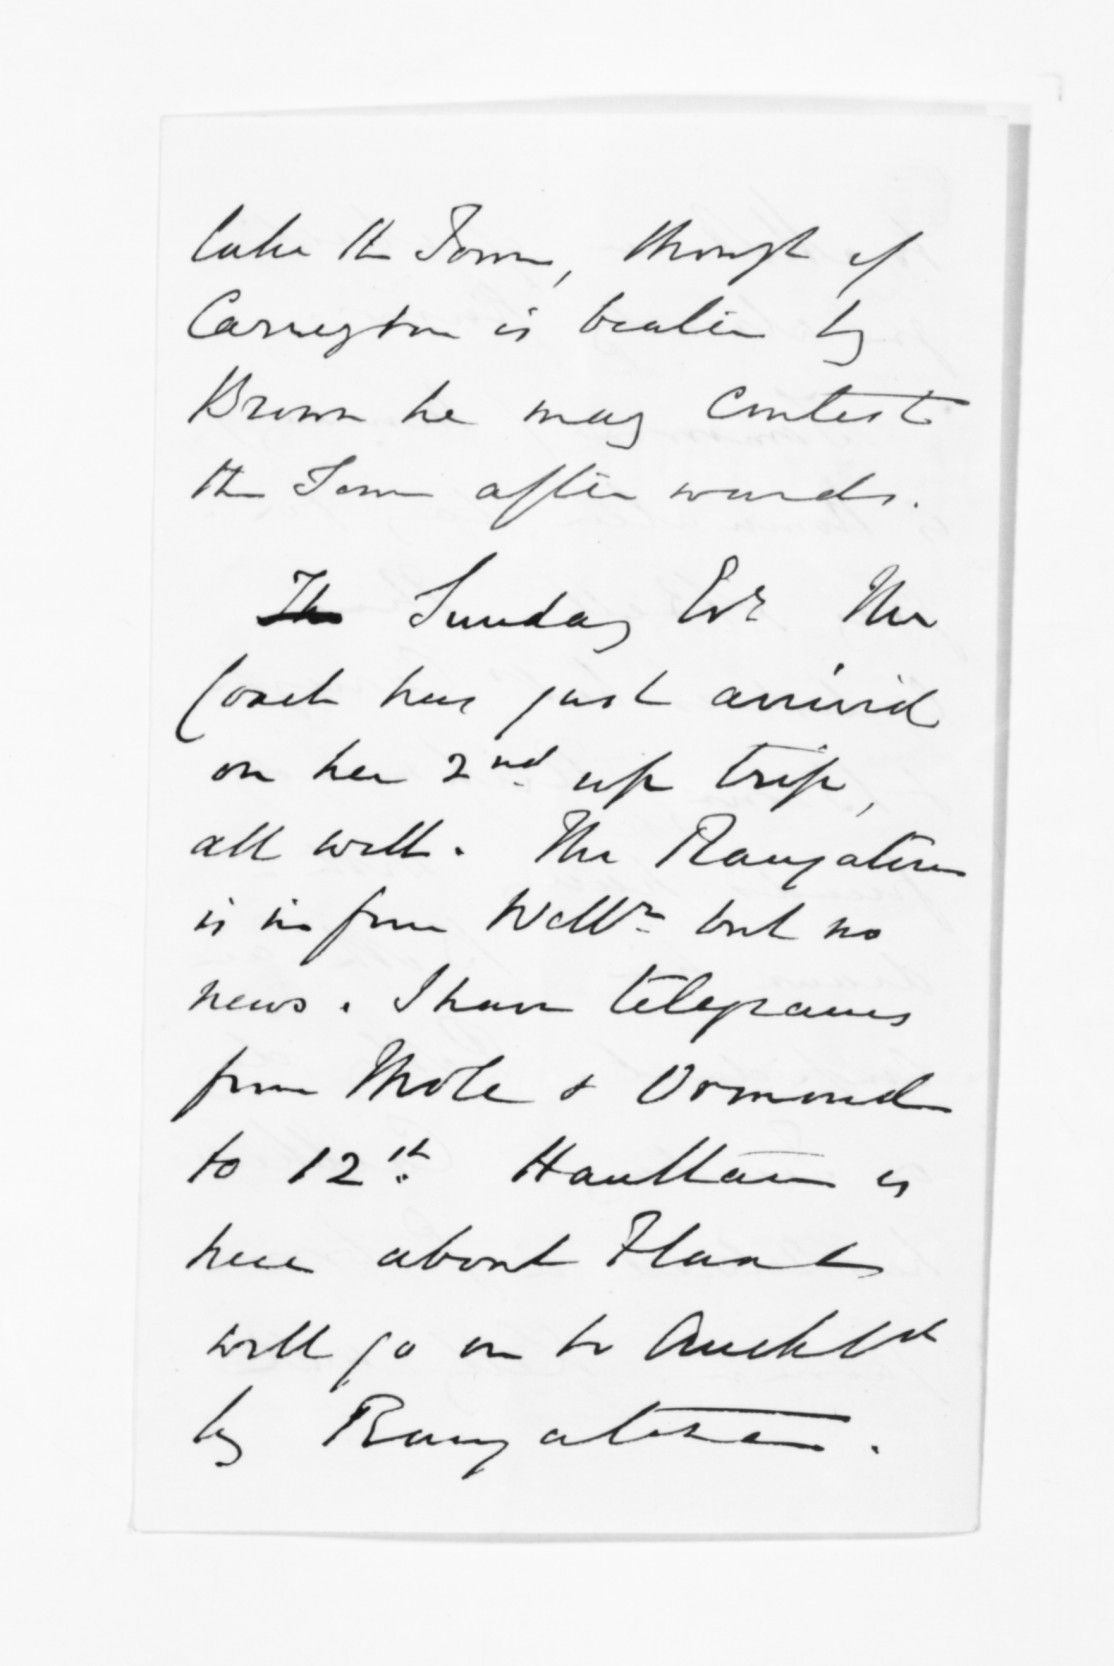 take the Town, though if
Carrington is beaten by
Brown he may contest
the Town afterwards.
The Sunday Evg The
Coach has just arrived
on her 2nd up trip,
all well. The Rangatira
is in from Welln but no
news. I have telegrams
from & Ormond
to 12th. Haultain is
here about
will go on to Auckld
by Rangatira.